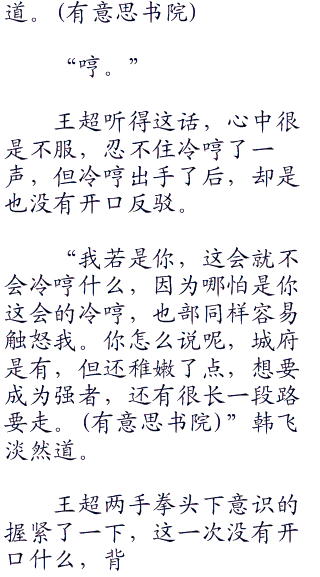 道。(有意思书院)
“哼。”
王超听得这话，心中很
是不服，忍不住冷哼了一
声，但冷哼出手了后，却是
也没有开口反驳。
“我若是你，这会就不
会冷哼什么，因为哪怕是你
这会的冷哼，也部同样容易
触怒我。你怎么说呢，城府
是有，但还稚嫩了点，想要
成为强者，还有很长一段路
要走。(有意思书院)”韩飞
淡然道。
王超两手拳头下意识的
握紧了一下，这一次没有开
口什么，背